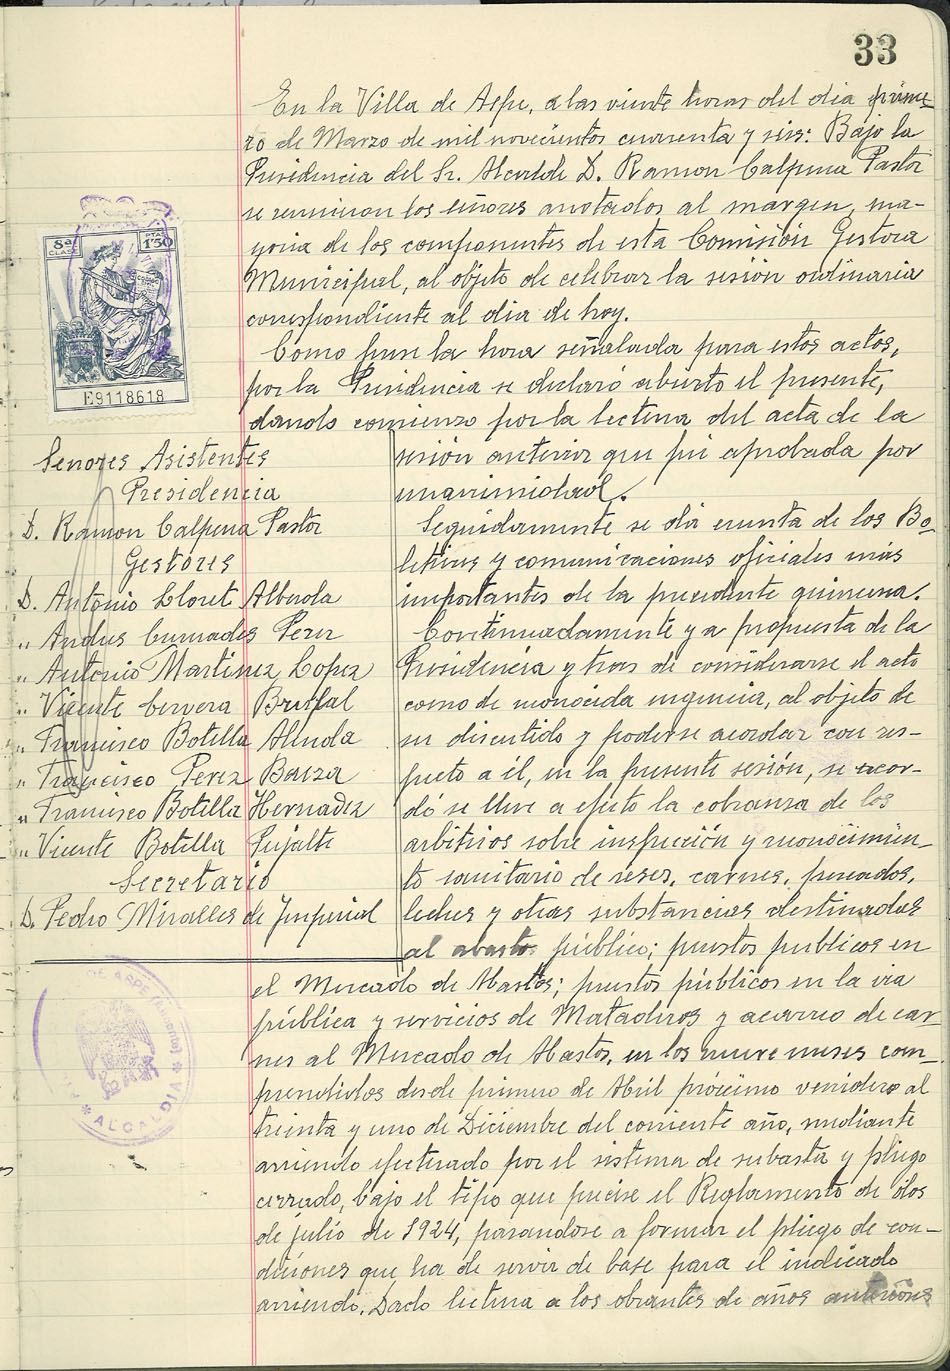 33
En la Villa de Aspe, a las viente horas del dia prime-
ro de Marzo de mil novecientos cuarenta y seis: Bajo la
Presidencia del Sr. Alcalde D. Ramon Calpena Pastor
se reunieron los señores anotados al margen, ma-
yoria de los componentes de esta Comisión Gestora
Municipal, al objeto de celebrar la sesión ordinaria
correspondiente al dia de hoy.
Como fuese la hora señalada para estos actos,
por la Presidencia se declaró abierto el presente,
dando comienzo por la lectura del acta de la
sesión anterior que fué aprobada por
unanimidad.
Seguidamente se dió cuenta de los Bo-
letines y comunicaciones oficiales más
importantes de la precedente quincena.
Continuadamente y a propuesta de la
Presidencia y tras de considerarse el acto
como de reconocida urgencia, al objeto de
ser discutido y poderse acordar con res-
pecto a él, en la presente sesión, se acor-
dó se lleve a efecto la cobranza de los
arbitrios sobre inspección y reconocimien-
to sanitario de reses, carnes, pescados,
leches y otras substancias destinadas
al abasto público; puestos publicos en
el Mercado de Abastos; puestos públicos en la via
pública y servicios de Mataderos y acarreo de car-
nes al Mercado de Abastos, en los nueve meses com-
prendidos desde primero de Abril próximo venidero al
treinta y uno de Diciembre del corriente año, mediante
arriendo efectuado por el sistema de subasta y pliego
cerrado, bajo el tipo que precise el Reglamento de dos
de julio de 1924, pasandose a formar el pliego de con-
diciones que ha de servir de base para el indicado
arriendo. Dado lectura a los obrantes de años anteriores
8ª CLASE
PTAS 1'50
E9118618
Senores Asistentes
Presidencia
D. Ramon Calpena Pastor
Gestores
D. Antonio Lloret Alberola
" Andres Cremades Perez
" Antonio Martinez Lopez
" Vicente Cervera Brufal
" Francisco Botella Almodo
" Francisco Perez Baeza
" Francisco Botilla Hernadez
" Vicente Botella Pujalte
Secretario
D. Pedro Miralles de Imperial
DE ASPE (Alicante) * ALCALDIA *